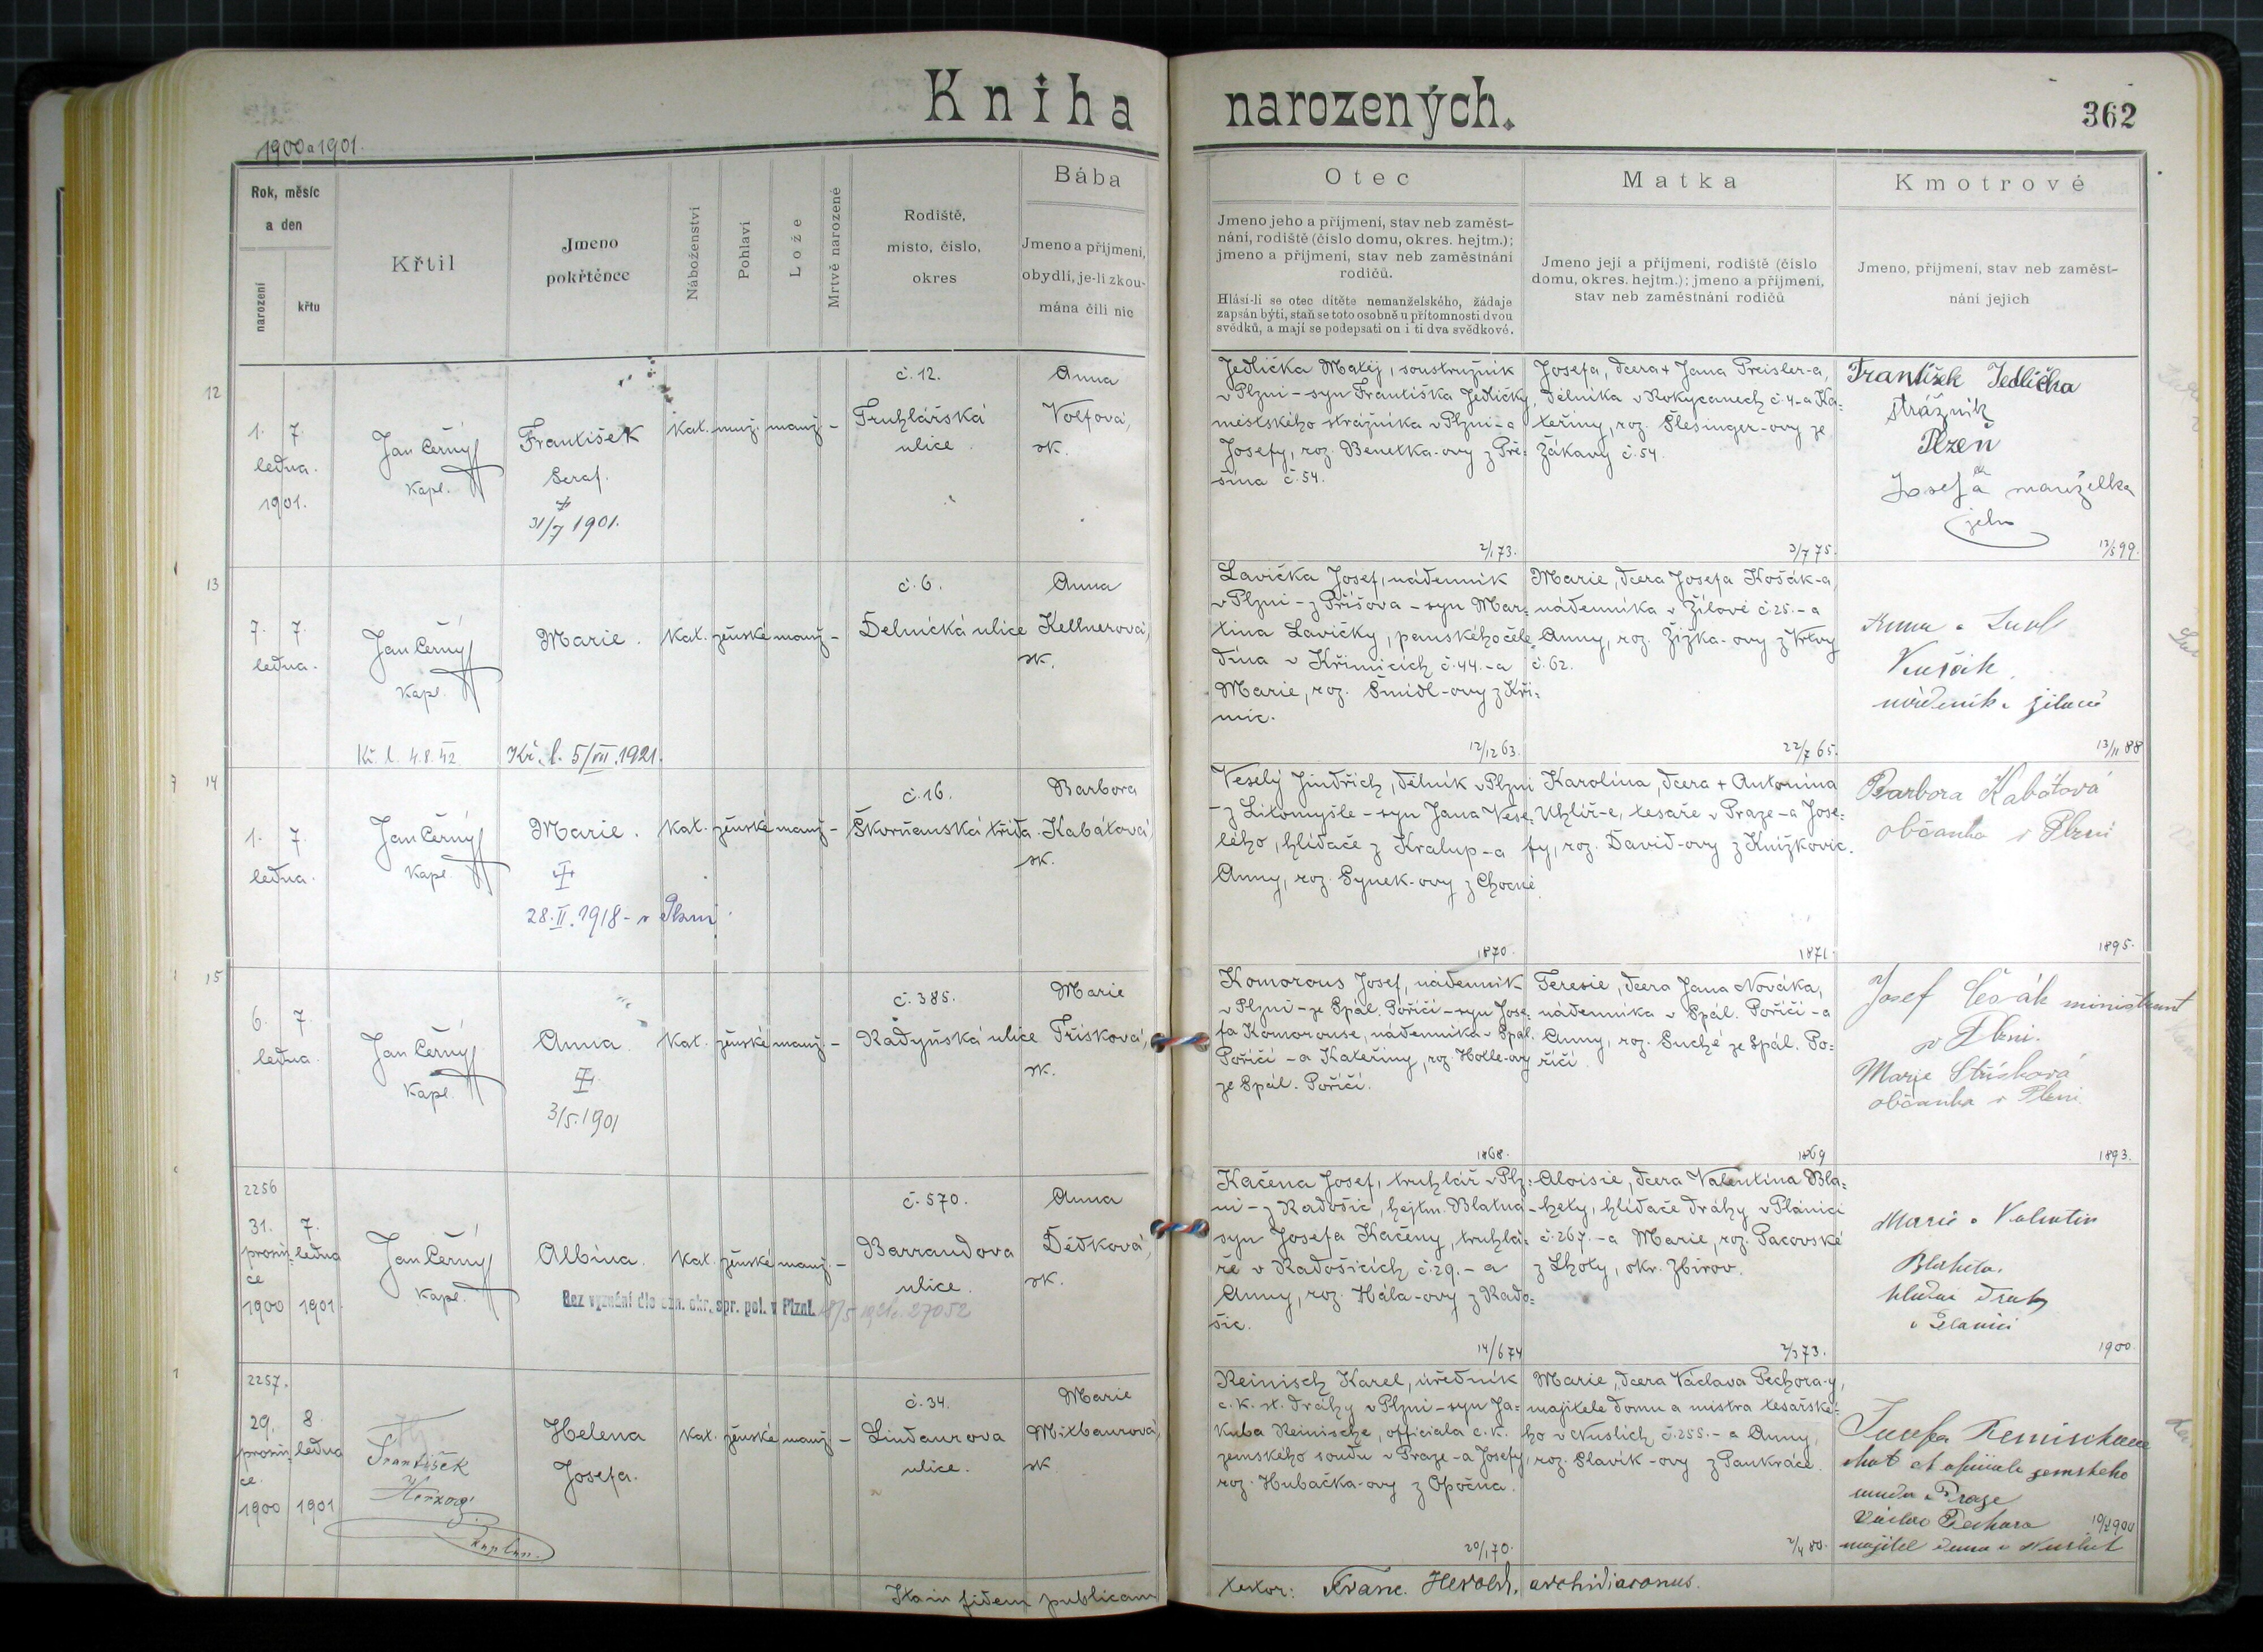 Kniha narozených.
362
1900 a 1901.
Rok, měsíc
a den
narození
křtu
Křtil
Jmeno
pokřtěnce
Náboženství
Pohlaví
Lože
Mrtvě narozené
Rodiště,
místo, číslo,
okres
Bába
Jmeno a příjmení,
obydlí, je-li zkou-
mána čili nic
Otec
Jmeno jeho a příjmení, stav neb zaměst-
nání, rodiště (číslo domu, okres. hejtm.);
jmeno a příjmení, stav neb zaměstnání
rodičů.
Hlásí-li se otec dítěte nemanželského, žádaje
zapsán býti, staň se toto osobně u přítomnosti dvou
svědků, a mají se podepsati on i ti dva svědkové.
Matka
Jmeno její a příjmení, rodiště (číslo
domu, okres. hejtm.); jmeno a příjmení,
stav neb zaměstnání rodičů
Kmotrové
Jmeno, příjmení, stav neb zaměst-
nání jejich
12
1. 7.
ledna.
1901.
Jan Černý
Kapl.
František
Seraf.
31/7 1901.
kat. muž. manž. -
č. 12.
Truhlářská
ulice.
Anna
Volfová,
zk.
Jedlička Matěj, soustružník
v Plzni - syn Františka Jedličky,
městského strážníka v Plzni - a
Josefy, roz. Benetka-ovy z Pře-
šína č. 54.
2/1 73.
Josefa, dcera + Jana Preisler-a,
dělníka v Rokycanech č. 4 - a Ka-
teřiny, roz. Šlesinger-ovy ze
Žákavy č. 54.
3/7 75.
František Jedlička
strážník
Plzeň
Josefa manželka
jeho
12/5 99.
13
7. 7.
ledna.
Jan Černý
Kapl.
Kř. l. 4.8.42
Marie.
Kř. l. 5/VII. 1921.
kat. ženské manž. -
č. 6.
Dělnická ulice
Anna
Kellnerová,
zk.
Lavička Josef, nádenník
v Plzni - z Příšova - syn Mar-
tina Lavičky, panského čele-
dína v Křimicích č. 44. - a
Marie, roz. Šmídl-ovy z Kři-
mic.
12/12 63.
Marie, dcera Josefa Košák-a,
nádenníka v Žilově č. 25. - a
Anny, roz. Žižka-ovy z Vrtvy
č. 62.
22/7 65.
13/11 88
14
1. 7.
ledna.
Jan Černý
Kapl.
Marie.
28. II. 1918 - v Plzni.
kat. ženské manž. -
č. 16.
Škvrňanská třída.
Barbora
Kabátová,
zk.
Veselý Jindřich, dělník v Plzni
- z Litomyšle - syn Jana Vese-
lého, hlídače z Kralup - a
Anny, roz. Synek-ovy z Chocně
1870.
Karolína, dcera + Antonína
Uhlíř-e, tesaře v Praze - a Jose-
fy, roz. David-ovy z Knížkovic.
1871.
Barbora Kabátová
občanka v Plzni
1895.
15
6. 7.
ledna.
Jan Černý
Kapl.
Anna
3/5. 1901
kat. ženské manž. -
č. 385.
Radyňská ulice
Marie
Třísková,
zk.
Komorous Josef, nádenník
v Plzni - ze Spál. Poříčí - syn Jose-
fa Komorouse, nádenníka v Spál.
Poříčí - a Kateřiny, roz. Holle-ovy
ze Spál. Poříčí.
1868.
Teresie, dcera Jana Nováka,
nádenníka v Spál. Poříčí - a
Anny, roz. Suché ze Spál. Po-
říčí.
1869
Josef Česák ministrant
v Plzni.
Marie Střísková
občanka v Plzni.
1893.
2256
31. 7.
prosin- ledna
ce
1900 1901.
Jan Černý
Kapl.
Albína.
Bez vyznání dle ozn. okr. spr. pol. v Plzni. 18/5 1921 č. 27052
kat. ženské manž. -
č. 570.
Barrandova
ulice.
Anna
Dědková,
zk.
Kačena Josef, truhlář v Plz-
ni - z Radošic, hejtm. Blatná -
syn Josefa Kačeny, truhlá-
ře v Radošicích č. 29. - a
Anny, roz. Hála-ovy z Rado-
šic.
14/6 74
Aloisie, dcera Valentina Bla-
hety, hlídače dráhy v Plánici
č. 267. - a Marie, roz. Pacovské
z Lhoty, okr. Zbirov.
2/3 73.
Marie a Valentin
Blaheta.
hlídač dráhy
v Plánici
1900.
2257.
29. 8.
prosin- ledna
ce.
1900 1901
František
Herzog
kaplan.
Helena
Josefa.
kat. ženské manž. -
č. 34.
Lindaurova
ulice.
Marie
Mixbaurová,
zk
Reinisch Karel, úředník
c. k. st. dráhy v Plzni - syn Ja-
kuba Reinische, officiala c. k.
zemského soudu v Praze - a Josefy,
roz. Hubačka-ovy z Opočna.
20/1 70.
Marie, dcera Václava Pechora-y,
majitele domu a mistra tesařské-
ho v Nuslích č. 255. - a Anny,
roz. Slavík-ovy z Pankráce.
2/4 80.
zemského
soudu v Praze
Václav Pechora
majitel domu v Nuslích
10/2 1900
Ita in fidem publicam
testor: Franc. Herold, archidiaconus.